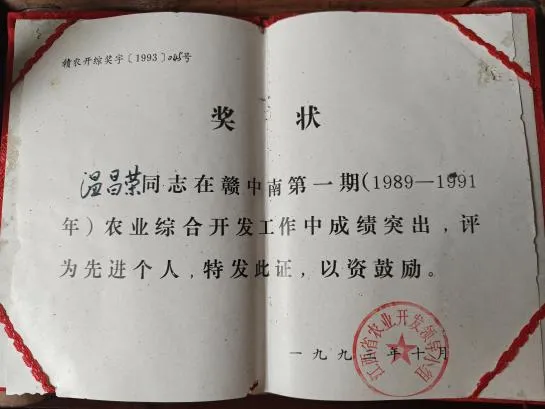 赣农开综奖字〔1993〕045号
奖 状
温昌荣同志在赣中南第一期(1989—1991
年)农业综合开发工作中成绩突出,评
为先进个人,特发此证,以资鼓励。
江西省农业开发领导小组
一九九三年十月